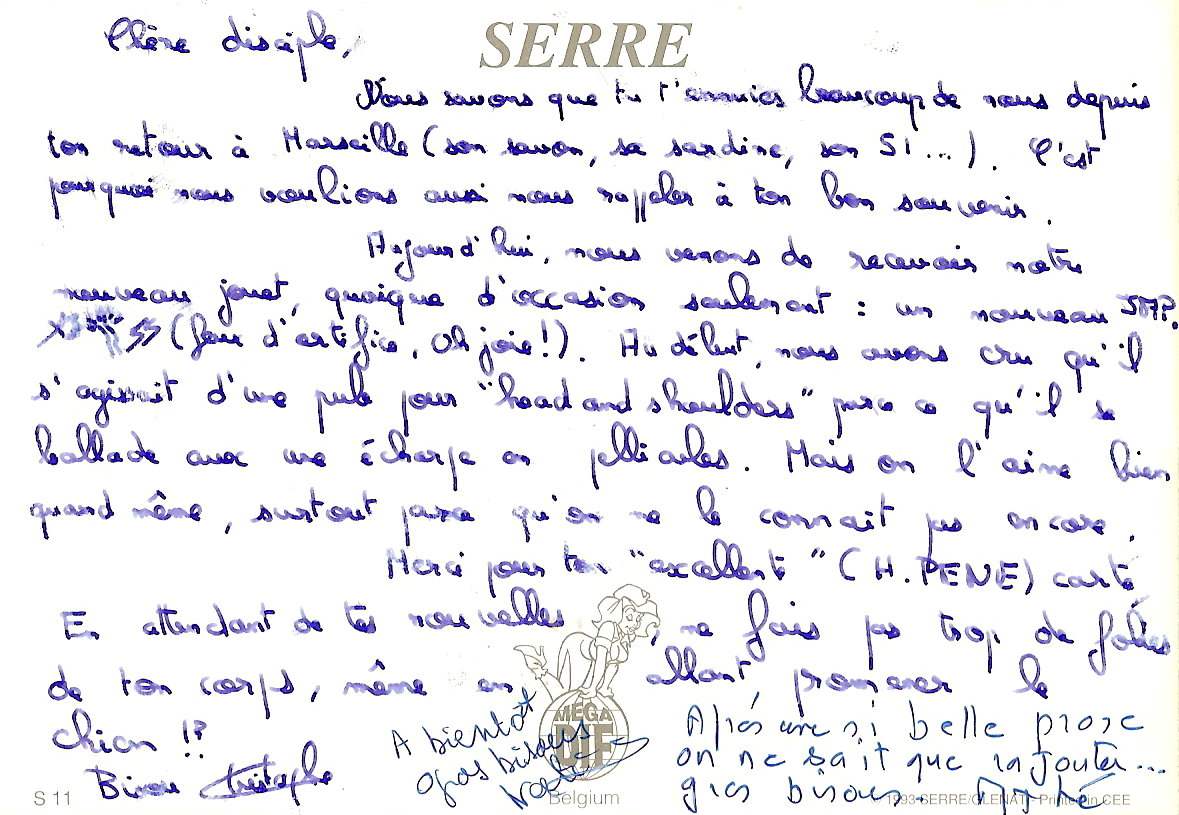 SERRE
Chère disciple,
Nous savons que tu t'ennuies beaucoup de nous depuis
ton retour à Marseille (son savon, sa sardine, son SI...). C'est
pourquoi nous voulions aussi nous rappeler à ton bon souvenir.
Aujourd'hui, nous venons de recevoir notre
nouveau jouet, quoique d'occasion seulement : un nouveau
(feu d'artifice, Oh joie!). Au début, nous avons cru qu'il
s'agissait d'une pub pour "head and shoulders" parce qu'il se
ballade avec une écharpe en pellicules. Mais on l'aime bien
quand même, surtout parce qu'on ne le connait pas encore.
Merci pour ton "excellente" (H. PENE) carte
En attendant de tes nouvelles, ne fais pas trop de folies
de ton corps, même en allant promener le
chien !?
Bisou Christophe
A bientôt
gros bisous
Après une si belle prose
on ne sait que rajouter...
gros bisous.
MEGA
DIF
S 11
Belgium
© 1993 SERRE/GLENAT - Printed in CEE